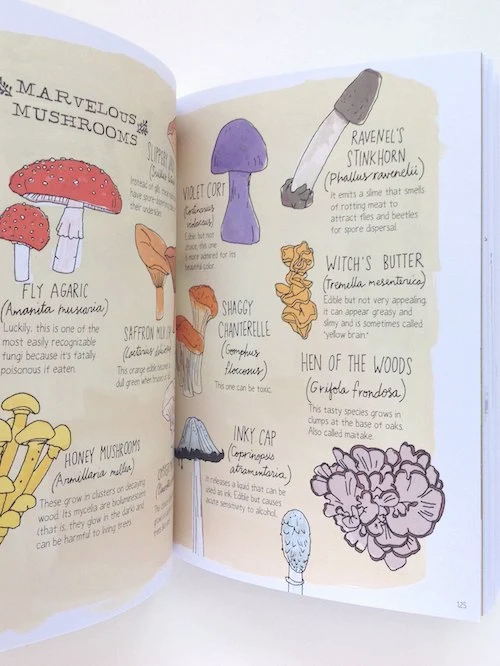 MARVELOUS
MUSHROOMS
SLIPPERY
Instead of gills, these
have spore-
their undersides.
FLY AGARIC
(Amanita muscaria)
Luckily, this is one of the
most easily recognizable
fungi because it's fatally
poisonous if eaten.
SAFFRON MILK
(Lactarius
This orange edible
dull green when
HONEY MUSHROOMS
(Armillaria mellea)
These grow in clusters on decaying
wood. Its mycelia are bioluminescent
(that is, they glow in the dark) and
can be harmful to living trees.
VIOLET CORT
(Cortinarius
violaceus)
Edible but not
choice, this one
is more admired for its
beautiful color.
RAVENEL'S
STINKHORN
(Phallus ravenelii)
It emits a slime that smells
of rotting meat to
attract flies and beetles
for spore dispersal.
WITCH'S BUTTER
(Tremella mesenterica)
Edible but not very appealing,
it can appear greasy and
slimy and is sometimes called
"yellow brain."
SHAGGY
CHANTERELLE
(Gomphus
floccosus)
This one can be toxic.
HEN OF THE WOODS
(Grifola frondosa)
This tasty species grows in
clumps at the base of oaks.
Also called maitake.
INKY CAP
(Coprinopsis
atramentaria)
It releases a liquid that can be
used as ink. Edible but causes
acute sensitivity to alcohol.
125